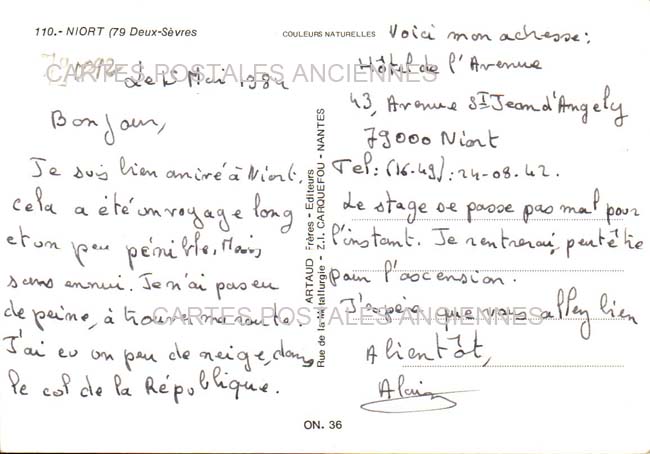 110.- NIORT (79 Deux-Sèvres
COULEURS NATURELLES
CARTES POSTALES ANCIENNES
Le Mai 1984
Bonjour,
Je suis bien arrivé à Niort,
cela a été un voyage long
et un peu pénible, Mais
sans ennui. Je n'ai pas eu
de peine, à trouver ma route.
J'ai eu un peu de neige, dans
le col de la République.
ARTAUD Frères - Editeurs
Rue de la Métallurgie - Z.I. CARQUEFOU - NANTES
Voici mon adresse:
Hôtel de l'Avenue
43, Avenue St Jean d'Angely
79000 Niort
Tel: (16.49): 24-08.42.
Le stage se passe pas mal pour
l'instant. Je rentrerai, peut être
pour l'ascension.
J'espère que vous allez bien
CARTES POSTALES ANCIENNES
A bientôt,
Alain
ON. 36